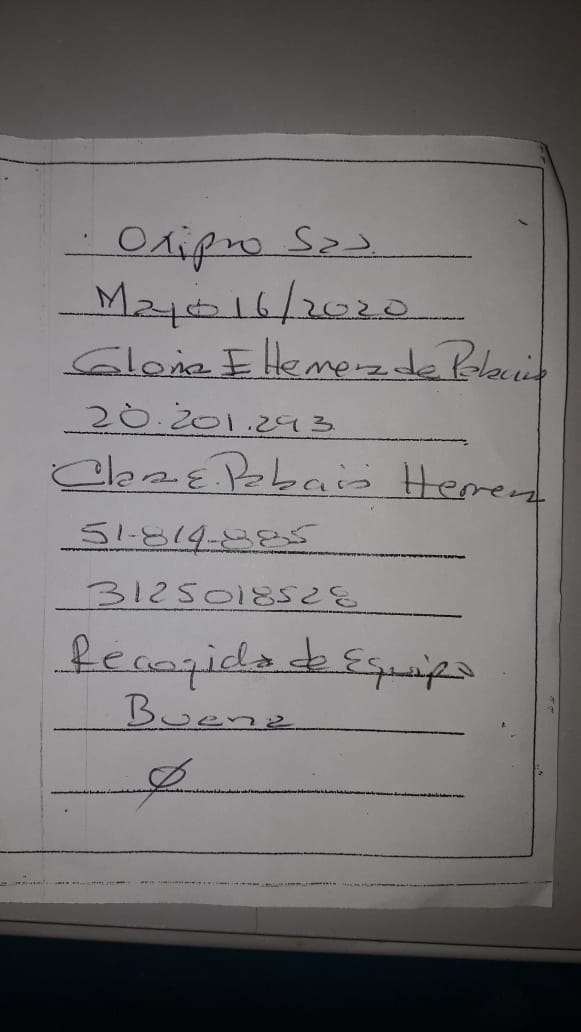 Oxipro Sas.
Mayo 16/2020
Gloria E Herrera de Palacio
20.201.293
Clara E. Palacio Herrera
51-814-885
3125018528
Recogida de Equipo
Buena
Ø